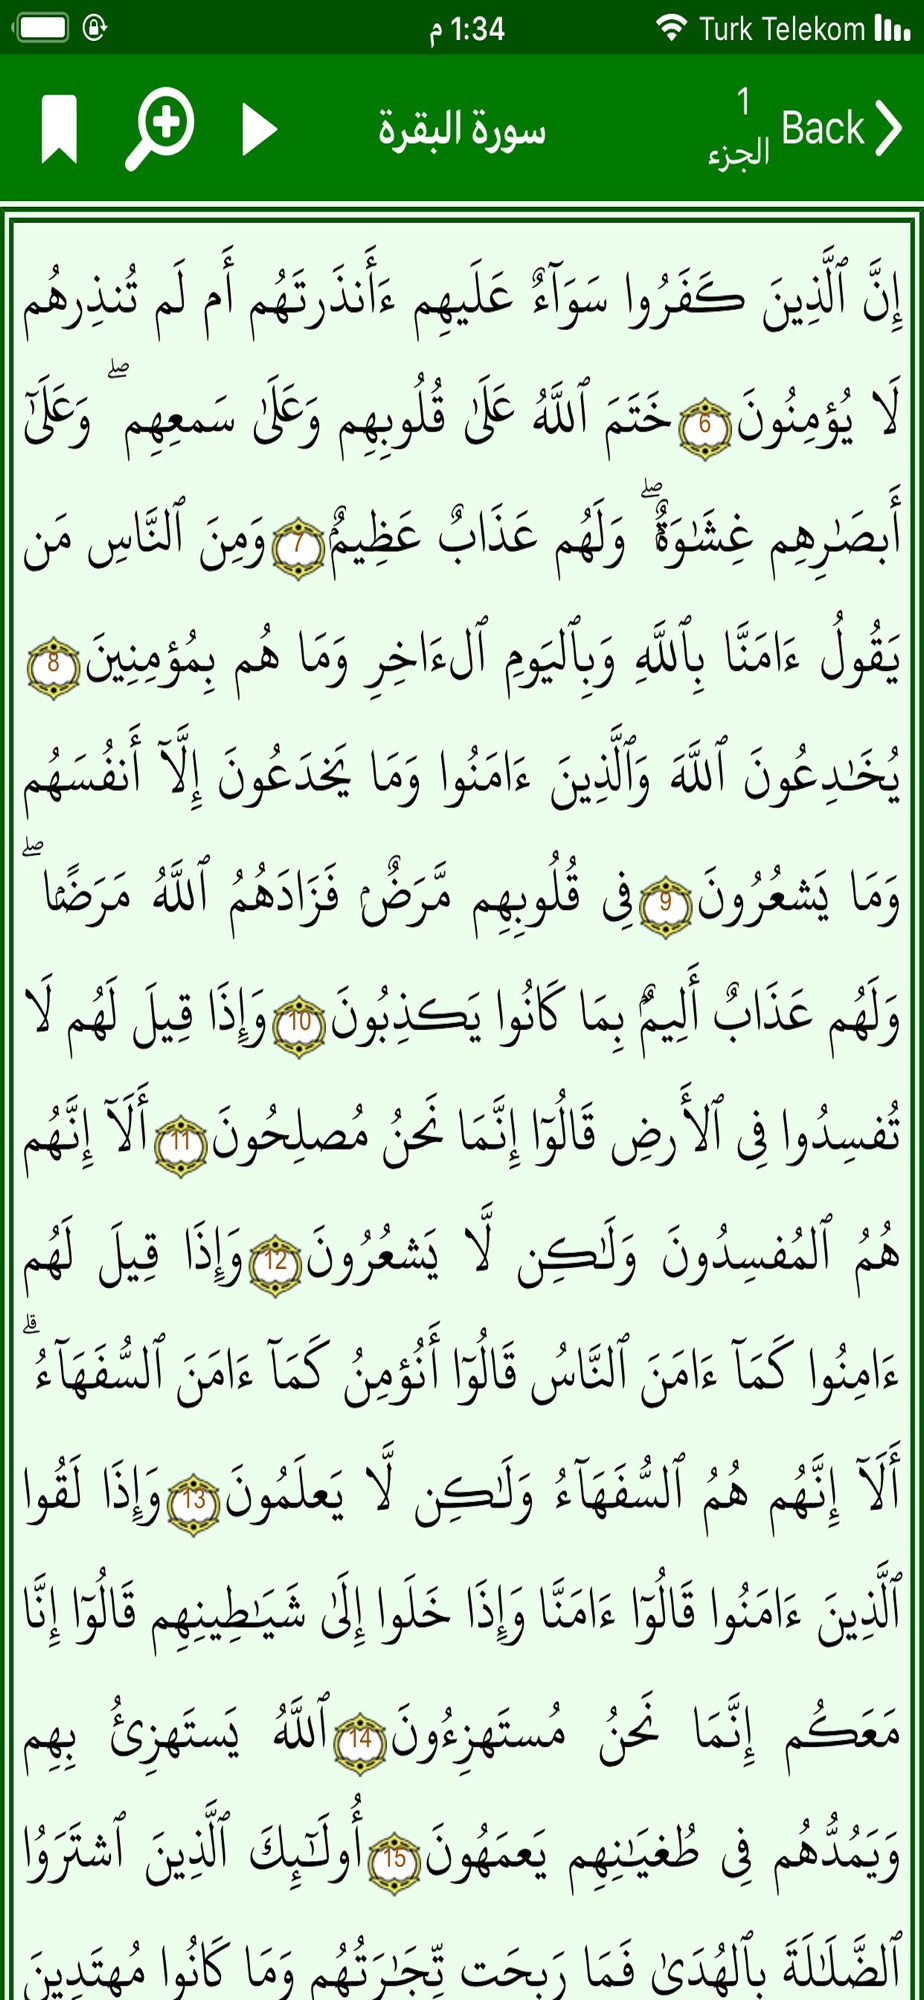 1:34 م
Turk Telekom
Back
1
الجزء
سورة البقرة
إِنَّ ٱلَّذِينَ كَفَرُوا سَوَآءٌ عَلَيهِم ءَأَنذَرتَهُم أَم لَم تُنذِرهُم
لَا يُؤمِنُونَ 6 خَتَمَ ٱللَّهُ عَلَىٰ قُلُوبِهِم وَعَلَىٰ سَمعِهِم ۖ وَعَلَىٰٓ
أَبصَـٰرِهِم غِشَـٰوَةٌ ۖ وَلَهُم عَذَابٌ عَظِيمٌ 7 وَمِنَ ٱلنَّاسِ مَن
يَقُولُ ءَامَنَّا بِٱللَّهِ وَبِٱليَومِ ٱلءَاخِرِ وَمَا هُم بِمُؤمِنِينَ 8
يُخَـٰدِعُونَ ٱللَّهَ وَٱلَّذِينَ ءَامَنُوا وَمَا يَخدَعُونَ إِلَّآ أَنفُسَهُم
وَمَا يَشعُرُونَ 9 فِى قُلُوبِهِم مَّرَضٌ فَزَادَهُمُ ٱللَّهُ مَرَضًا ۖ
وَلَهُم عَذَابٌ أَلِيمٌ بِمَا كَانُوا يَكذِبُونَ 10 وَإِذَا قِيلَ لَهُم لَا
تُفسِدُوا فِى ٱلأَرضِ قَالُوٓا إِنَّمَا نَحنُ مُصلِحُونَ 11 أَلَآ إِنَّهُم
هُمُ ٱلمُفسِدُونَ وَلَـٰكِن لَّا يَشعُرُونَ 12 وَإِذَا قِيلَ لَهُم
ءَامِنُوا كَمَآ ءَامَنَ ٱلنَّاسُ قَالُوٓا أَنُؤمِنُ كَمَآ ءَامَنَ ٱلسُّفَهَآءُ ۗ
أَلَآ إِنَّهُم هُمُ ٱلسُّفَهَآءُ وَلَـٰكِن لَّا يَعلَمُونَ 13 وَإِذَا لَقُوا
ٱلَّذِينَ ءَامَنُوا قَالُوٓا ءَامَنَّا وَإِذَا خَلَوا إِلَىٰ شَيَـٰطِينِهِم قَالُوٓا إِنَّا
مَعَكُم إِنَّمَا نَحنُ مُستَهزِءُونَ 14 ٱللَّهُ يَستَهزِئُ بِهِم
وَيَمُدُّهُم فِى طُغيَـٰنِهِم يَعمَهُونَ 15 أُولَـٰٓئِكَ ٱلَّذِينَ ٱشتَرَوُا
ٱلضَّلَـٰلَةَ بِٱلهُدَىٰ فَمَا رَبِحَت تِّجَـٰرَتُهُم وَمَا كَانُوا مُهتَدِينَ